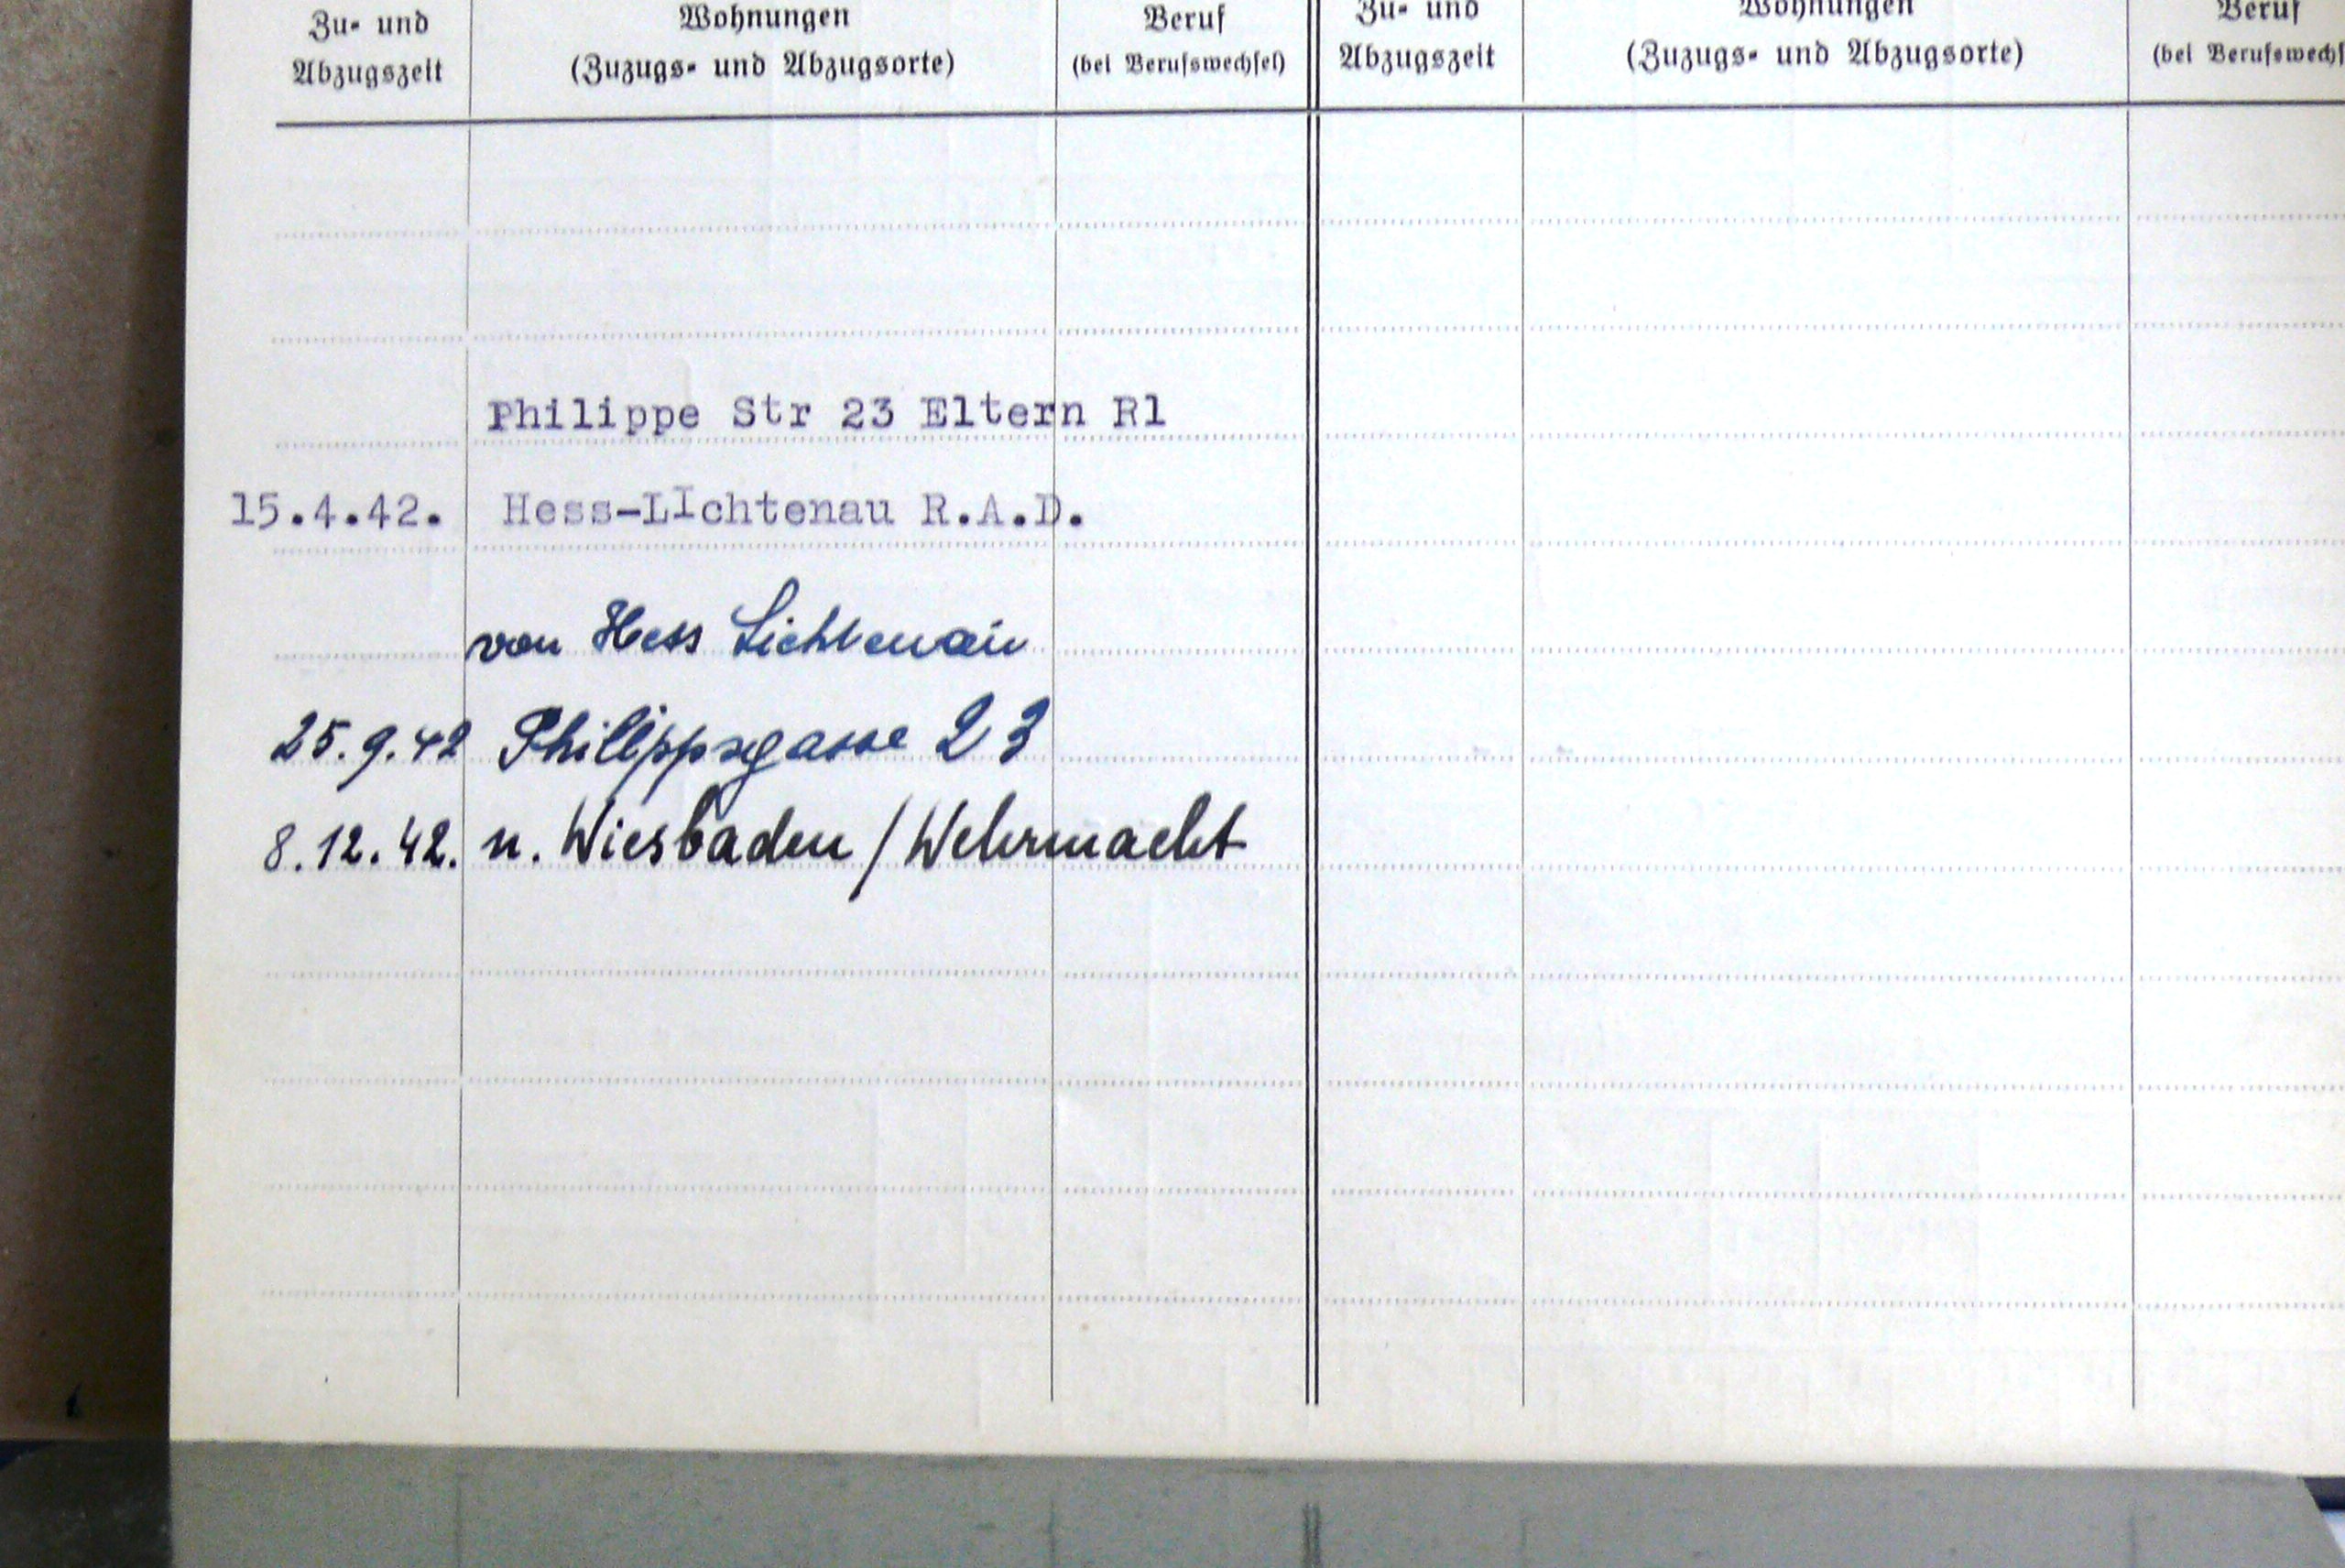 Zu- und
Abzugszeit
Wohnungen
(Zuzugs- und Abzugsorte)
Beruf
(bei Berufswechsel)
Zu- und
Abzugszeit
Wohnungen
(Zuzugs- und Abzugsorte)
Beruf
(bei Berufswechs
Philippe Str 23 Eltern Rl
15.4.42. Hess-LIchtenau R.A.D.
von Hess Lichtenau
25.9.42 Philippsgasse 23
8.12.42. n. Wiesbaden / Wehrmacht